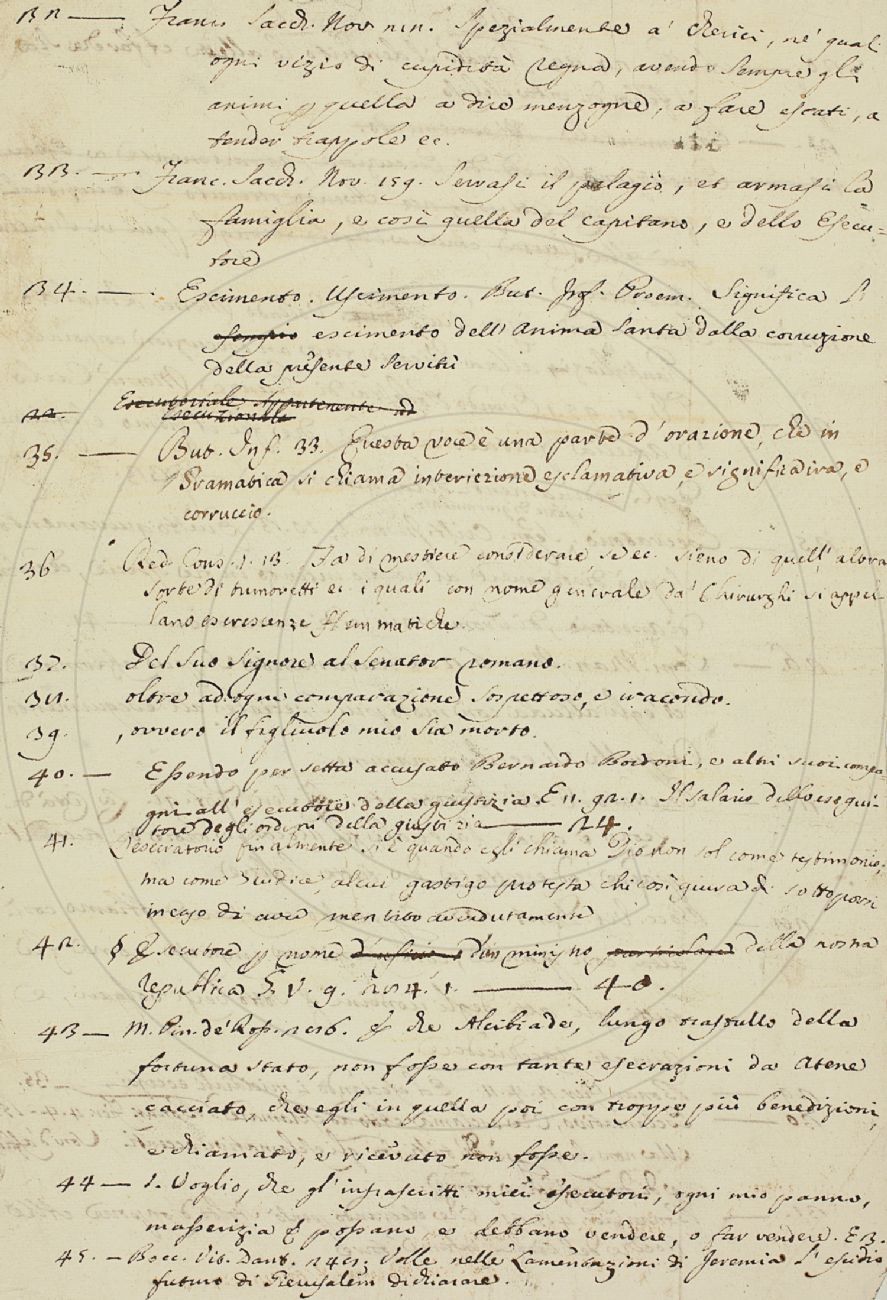 32 — Franc. Sacch. Nov. 212. Spezialmente a' cherici, ne' quali
ogni vizio di cupidità regna, avendo sempre gli
animi p quella a dire menzogne, a fare escati, a
tender trappole ec.
33. — Franc. Sacch. Nov. 159. Serrasi il palagio, et armasi la
famiglia, e così quella del capitano, e dello Esecu=
tore
34. — Escimento. Uscimento. But. Inf. Proem. Significa l'
escimento dell'Anima santa dalla corruzione
della presente servitù
22. Esecutoriale Appartenente ad
Esecuzione
35. — But. Inf. 33. Questa voce è una parte d'orazione, che in
Gramatica si chiama interiezione esclamativa, e significativa, e
corruccio.
36 Red. Cons. 1. 13. Fa di mestiere considerare, se ec. sieno di quell'altra
sorte di tumoretti ec. i quali con nome generale da' Chirurghi si appel-
lano escrescenze
37. Del suo Signore al Senator romano.
38. oltre ad ogni comparazione sospettoso, e iracondo.
39. , ovvero il figliuolo mio sia morto.
40. — Essendo per setta accusato Bernardo Bordoni, e altri suoi compa-
gni all'esecutore della giustizia. E 11. 92. 1. Il salario dello esegui-
tore degli ordini della giustizia — 24.
41. L'esecratorio finalmente si è quando egli chiama Dio non sol come testimonio,
ma come Giudice, al cui gastigo protesta chi così giura di sottoporsi
in caso di aver mentito avvedutamente
42. § Esecutore p nome d'ufizio, d'un ministro particolare della nostra
repubblica G. V. 9. 214. 1. — 40.
43 — M. Pin. de' Ros. che Alcibiade, lungo trastullo della
fortuna stato, non fosse con tante esecrazioni da Atene
cacciato, che egli in quella poi con troppe più benedizioni,
e chiamato, e ricevuto non fosse.
44 — 1. Voglio, che gl'infrascritti miei esecutori, ogni mio panno,
masserizia possano e debbano vendere, o far vendere. E 3.
45. — Bocc. Vit. Dant. Volle nelle Lamentazioni di Jeremia l'escidio
futuro di Gierusalem dichiarare.